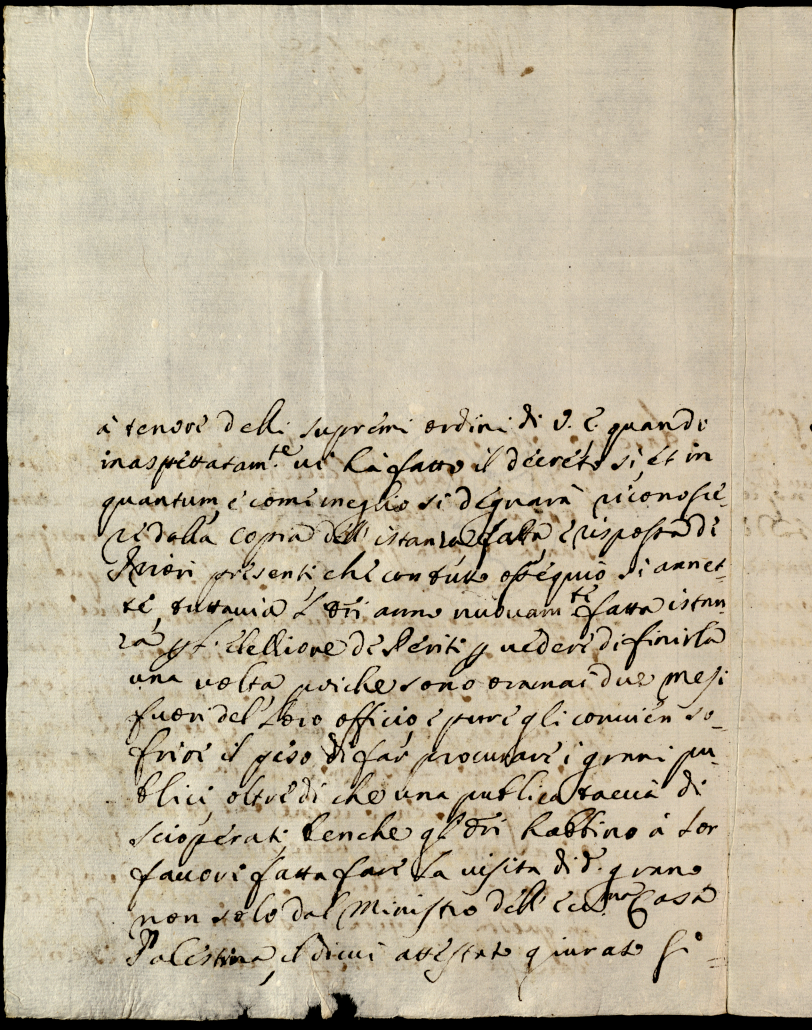 à tenore delli supremi ordini di V. E. quando
inaspettatam.te vi hà fatto il decreto si, et in
quantum, e come meglio si degnarà riconosce-
re dalla copia dell' istanza fatta, e risposta de
Priori presenti, che con tutto ossequio si annet-
te, tuttavia detti anno nuovam.te fatta istan-
za p l' elezzione de Periti p vedere di finirla
una volta, poiche sono oramai due mesi
fuori del Loro officio, e pure gli convien so-
frire il peso di far procurare i grani pu-
blici, oltre di che una publica taccia di
scioperati, benche gl' dti habbino à lor
favore fatta fare la visita di d. grano
non solo dal Ministro dell' Ecc.ma Casa
Palestrina, il di cui attestato giurato si